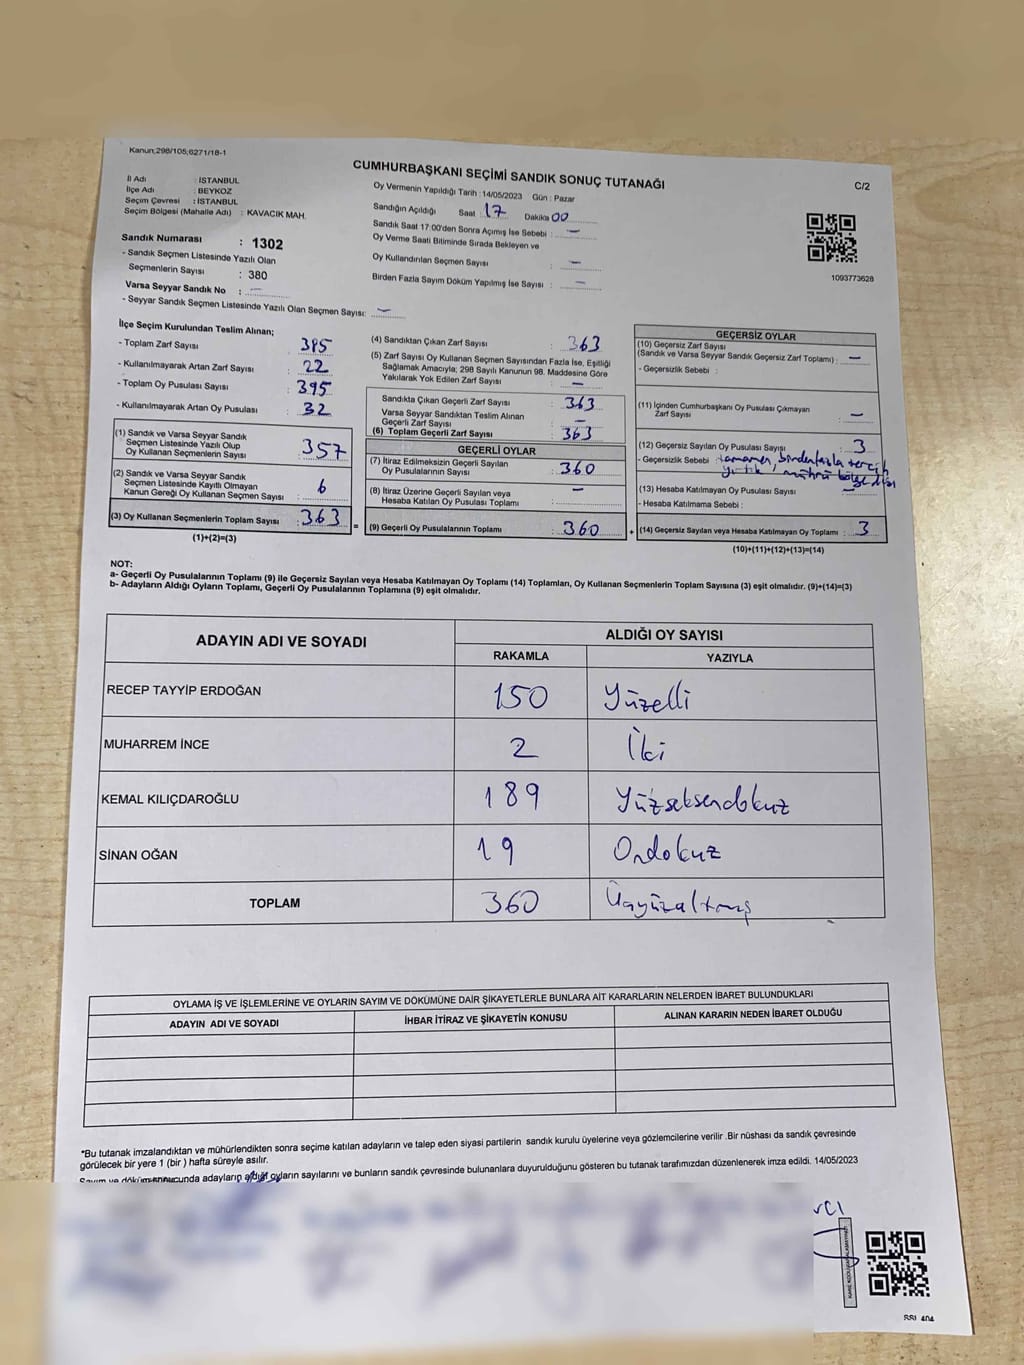 Kanun;298/105;6271/18-1
CUMHURBAŞKANI SEÇİMİ SANDIK SONUÇ TUTANAĞI
C/2
İl Adı : İSTANBUL
İlçe Adı : BEYKOZ
Seçim Çevresi : İSTANBUL
Seçim Bölgesi (Mahalle Adı) : KAVACIK MAH.
Sandık Numarası : 1302
- Sandık Seçmen Listesinde Yazılı Olan
Seçmenlerin Sayısı : 380
Varsa Seyyar Sandık No : —
- Seyyar Sandık Seçmen Listesinde Yazılı Olan Seçmen Sayısı: —
Oy Vermenin Yapıldığı Tarih : 14/05/2023 Gün : Pazar
Sandığın Açıldığı Saat : 17 Dakika 00
Sandık Saat 17:00'den Sonra Açımış İse Sebebi : —
Oy Verme Saati Bitiminde Sırada Bekleyen ve
Oy Kullandırılan Seçmen Sayısı : —
Birden Fazla Sayım Döküm Yapılmış İse Sayısı : —
1093773628
İlçe Seçim Kurulundan Teslim Alınan;
- Toplam Zarf Sayısı : 385
- Kullanılmayarak Artan Zarf Sayısı : 22
- Toplam Oy Pusulası Sayısı : 395
- Kullanılmayarak Artan Oy Pusulası : 32
(1) Sandık ve Varsa Seyyar Sandık
Seçmen Listesinde Yazılı Olup
Oy Kullanan Seçmenlerin Sayısı : 357
(2) Sandık ve Varsa Seyyar Sandık
Seçmen Listesinde Kayıtlı Olmayan
Kanun Gereği Oy Kullanan Seçmen Sayısı : 6
(3) Oy Kullanan Seçmenlerin Toplam Sayısı : 363 =
(1)+(2)=(3)
(4) Sandıktan Çıkan Zarf Sayısı : 363
(5) Zarf Sayısı Oy Kullanan Seçmen Sayısından Fazla İse, Eşitliği
Sağlamak Amacıyla; 298 Sayılı Kanunun 98. Maddesine Göre
Yakılarak Yok Edilen Zarf Sayısı : —
Sandıkta Çıkan Geçerli Zarf Sayısı : 363
Varsa Seyyar Sandıktan Teslim Alınan
Geçerli Zarf Sayısı : —
(6) Toplam Geçerli Zarf Sayısı : 363
GEÇERLİ OYLAR
(7) İtiraz Edilmeksizin Geçerli Sayılan
Oy Pusulalarının Sayısı : 360
(8) İtiraz Üzerine Geçerli Sayılan veya
Hesaba Katılan Oy Pusulası Toplamı : —
(9) Geçerli Oy Pusulalarının Toplamı : 360 +
GEÇERSİZ OYLAR
(10) Geçersiz Zarf Sayısı
(Sandık ve Varsa Seyyar Sandık Geçersiz Zarf Toplamı) : —
- Geçersizlik Sebebi :
(11) İçinden Cumhurbaşkanı Oy Pusulası Çıkmayan
Zarf Sayısı : —
(12) Geçersiz Sayılan Oy Pusulası Sayısı : 3
- Geçersizlik Sebebi : tamamen, birden fazla tercih
yırtık, mühür bölge dışı
(13) Hesaba Katılmayan Oy Pusulası Sayısı :
- Hesaba Katılmama Sebebi :
(14) Geçersiz Sayılan veya Hesaba Katılmayan Oy Toplamı : 3
(10)+(11)+(12)+(13)=(14)
NOT:
a- Geçerli Oy Pusulalarının Toplamı (9) ile Geçersiz Sayılan veya Hesaba Katılmayan Oy Toplamı (14) Toplamları, Oy Kullanan Seçmenlerin Toplam Sayısına (3) eşit olmalıdır. (9)+(14)=(3)
b- Adayların Aldığı Oyların Toplamı, Geçerli Oy Pusulalarının Toplamına (9) eşit olmalıdır.
ADAYIN ADI VE SOYADI
ALDIĞI OY SAYISI
RAKAMLA YAZIYLA
RECEP TAYYİP ERDOĞAN 150 Yüzelli
MUHARREM İNCE 2 İki
KEMAL KILIÇDAROĞLU 189 Yüzseksendokuz
SİNAN OĞAN 19 Ondokuz
TOPLAM 360 Üçyüzaltmış
OYLAMA İŞ VE İŞLEMLERİNE VE OYLARIN SAYIM VE DÖKÜMÜNE DAİR ŞİKAYETLERLE BUNLARA AİT KARARLARIN NELERDEN İBARET BULUNDUKLARI
ADAYIN ADI VE SOYADI İHBAR İTİRAZ VE ŞİKAYETİN KONUSU ALINAN KARARIN NEDEN İBARET OLDUĞU
*Bu tutanak imzalandıktan ve mühürlendikten sonra seçime katılan adayların ve talep eden siyasi partilerin sandık kurulu üyelerine veya gözlemcilerine verilir .Bir nüshası da sandık çevresinde
görülecek bir yere 1 (bir ) hafta süreyle asılır.
Sayım ve döküm sonucunda adayların aldığı oyların sayılarını ve bunların sandık çevresinde bulunanlara duyurulduğunu gösteren bu tutanak tarafımızdan düzenlenerek imza edildi. 14/05/2023